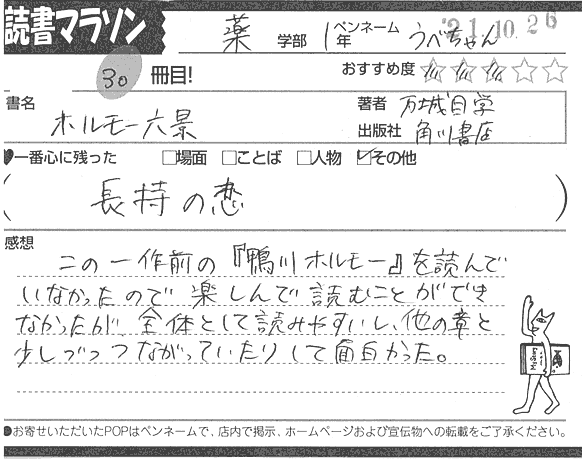 読書マラソン
薬 学部 1年 ペンネーム うべちゃん
'21.10.26
30 冊目! おすすめ度 ★★★☆☆
書名 ホルモー六景
著者 万城目学
出版社 角川書店
♥一番心に残った □場面 □ことば □人物 ☑その他
(長持の恋)
感想
この一作前の『鴨川ホルモー』を読んで
いなかったので楽しんで読むことができ
なかったが、全体として読みやすいし、他の章と
少しづつつながっていたりして面白かった。
●お寄せいただいたPOPはペンネームで、店内で掲示、ホームページおよび宣伝物への転載をご了承ください。